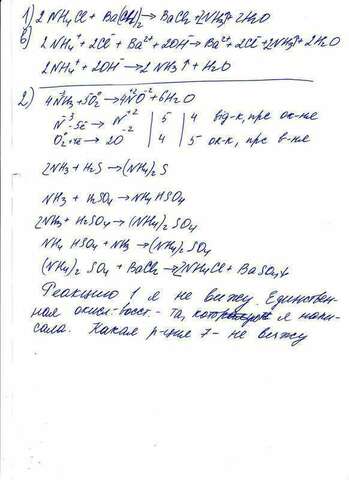 1) 2NH₄Cl + Ba(OH)₂ → BaCl₂ + 2NH₃↑ + 2H₂O
б) 2NH₄⁺ + 2Cl⁻ + Ba²⁺ + 2OH⁻ → Ba²⁺ + 2Cl⁻ + 2NH₃↑ + 2H₂O
2NH₄⁺ + 2OH⁻ → 2NH₃↑ + H₂O
2) 4N⁻³H₃ + 5O₂⁰ → 4N⁺²O⁻² + 6H₂O
N⁻³ - 5e → N⁺² | 5 | 4 від-к, пр-с ок-не
O₂⁰ + 4e → 2O⁻² | 4 | 5 ок-к, пр-с в-не
2NH₃ + H₂S → (NH₄)₂S
NH₃ + H₂SO₄ → NH₄HSO₄
2NH₃ + H₂SO₄ → (NH₄)₂SO₄
NH₄HSO₄ + NH₃ → (NH₄)₂SO₄
(NH₄)₂SO₄ + BaCl₂ → 2NH₄Cl + BaSO₄↓
Реакцию 1 я не вижу. Единствен-
ная окисл.-восст. - та, которую я напи-
сала. Какая р-ция 7 - не вижу